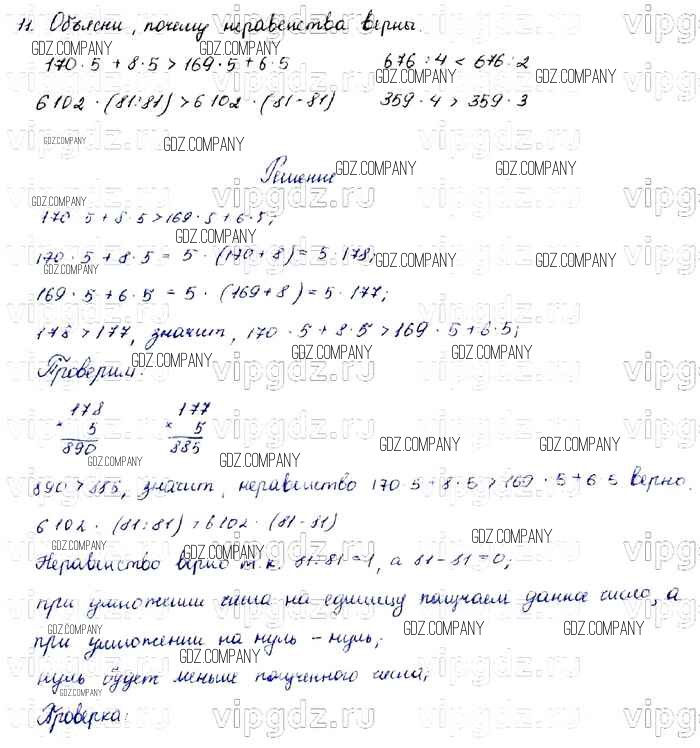 11. Объясни, почему неравенства верны.
170 · 5 + 8 · 5 > 169 · 5 + 6 · 5 676 : 4 < 676 : 2
6102 · (81:81) > 6102 · (81-81) 359 · 4 > 359 · 3
Решение
170 5 + 8 · 5 > 169 · 5 + 6 · 5;
170 · 5 + 8 · 5 = 5 · (170 + 8) = 5 · 178;
169 · 5 + 6 · 5 = 5 · (169 + 8) = 5 · 177;
178 > 177, значит, 170 · 5 + 8 · 5 > 169 · 5 + 6 · 5;
Проверим:
178 177
× 5 × 5
890 885
890 > 885, значит, неравенство 170 · 5 + 8 · 5 > 169 · 5 + 6 5 верно.
6102 · (81:81) > 6102 · (81-81)
Неравенство верно т.к. 81:81=1, а 81-81=0;
при умножении числа на единицу получаем данное число, а
при умножении на нуль - нуль;
нуль будет меньше полученного числа;
Проверка:
GDZ.COMPANY
vipgdz.ru